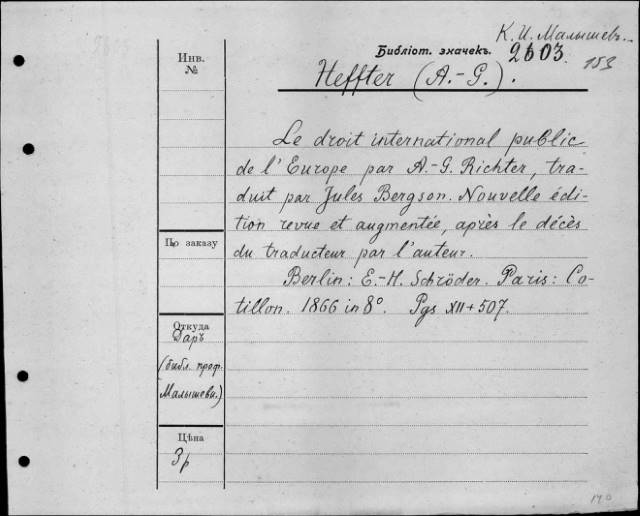 К. И. Малышевъ.
Библіот. значекъ.
2603.
153
Инв.
№
Heffter (A.-G.).
Le droit international public
de l'Europe par A.-G. Richter, tra-
duit par Jules Bergson. Nouvelle édi-
tion revue et augmentée, après le décès
du traducteur par l'auteur.
Berlin: E.-H. Schröder. Paris: Co-
tillon. 1866 in 8°. Pgs XII + 507.
По заказу
Откуда
Даръ
(библ. проф.
Малышева.)
Цѣна
3 р